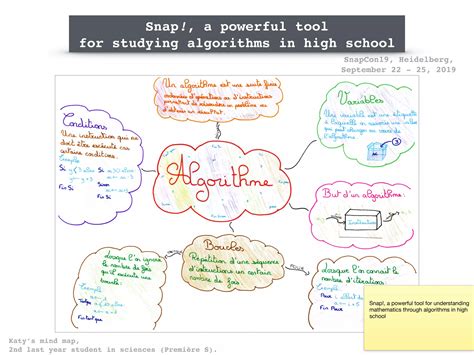 Snap!, a powerful tool
for studying algorithms in high school
SnapCon19, Heidelberg,
September 22 – 25, 2019
Un algorithme est une suite finie
d'opérations ou d'instructions
permettant de résoudre un problème ou
d'obtenir un résultat.
Variables
Une variable est une étiquette
à laquelle on associe une valeur
qui peut changer au cours de
l'algorithme.
3
Conditions
Une instruction qui ne
doit être exécutée que
certaines conditions.
Exemple
Si
Si
Fin Si
Fin Si
Algorithme
But d'un algorithme:
Instructions
Boucles
Répétition d'une séquence
d'instructions un certain
nombre de fois
Lorsque l'on ignore
le nombre de fois
qu'il exécute une
boucle:
Exemple
Tant que
Fin Tant que
Lorsque l'on connait le
nombre d'itérations:
Exemple
Pour i allant de
Fin Pour
Snap!, a powerful tool for understanding
mathematics through algorithms in high
school
Katy's mind map,
2nd last year student in sciences (Première S).